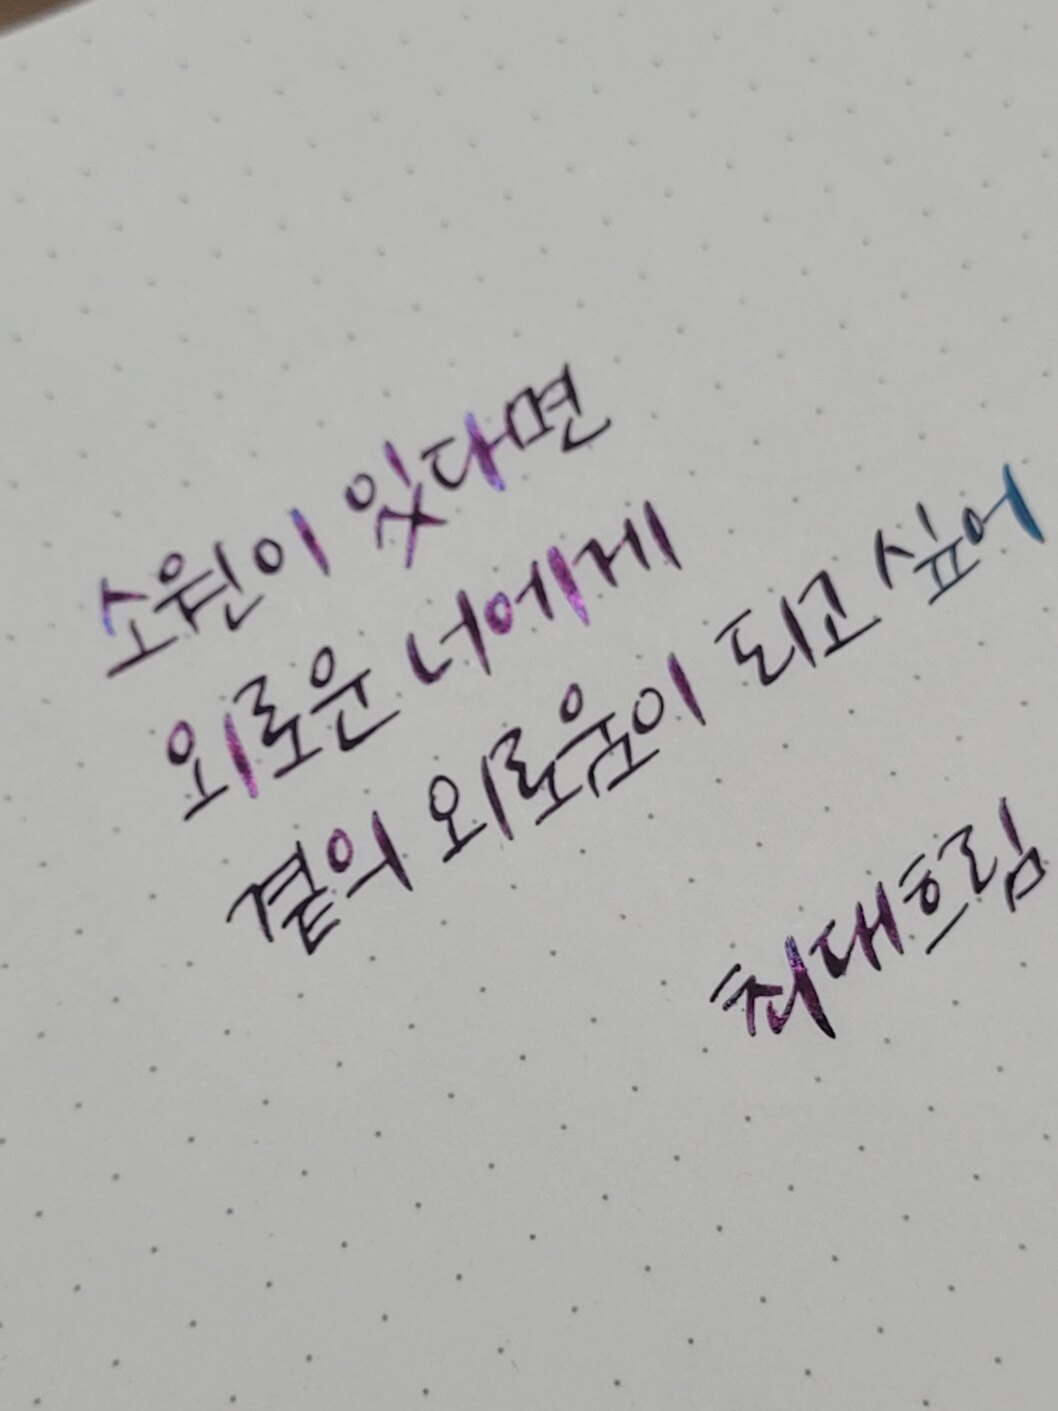 소원이 있다면
외로운 너에게
곁의 외로움이 되고 싶어
최대흐림